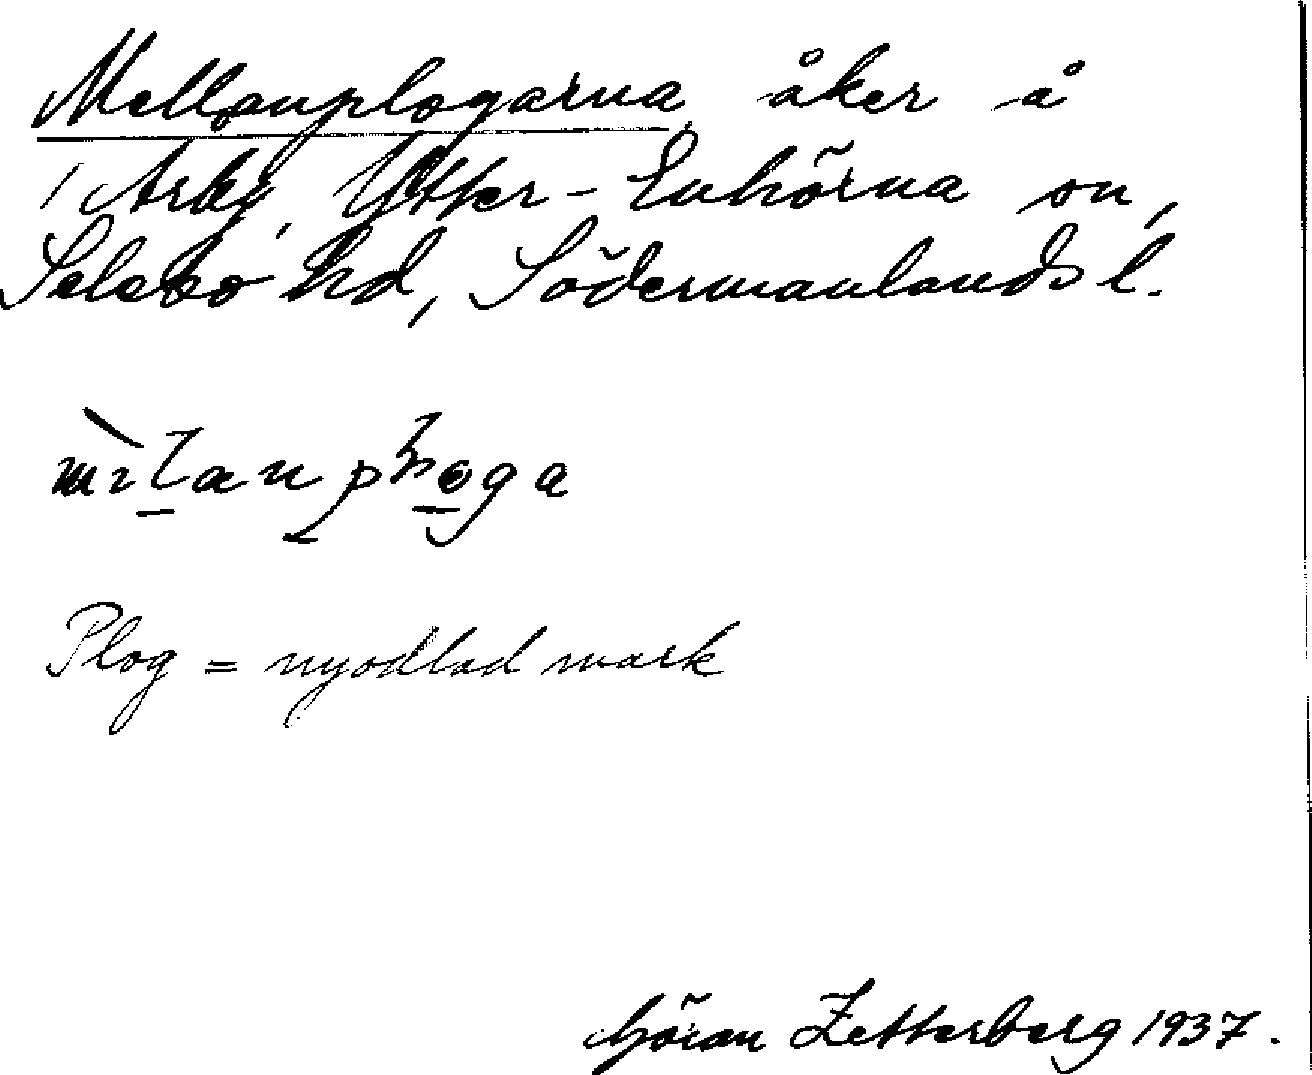 Mellanplogarna, åker å
1 Arby, Ytter-Enhörna sn,
Selebo hd, Södermanlands l.
Plog = nyodlad mark
Göran Zetterberg 1937.